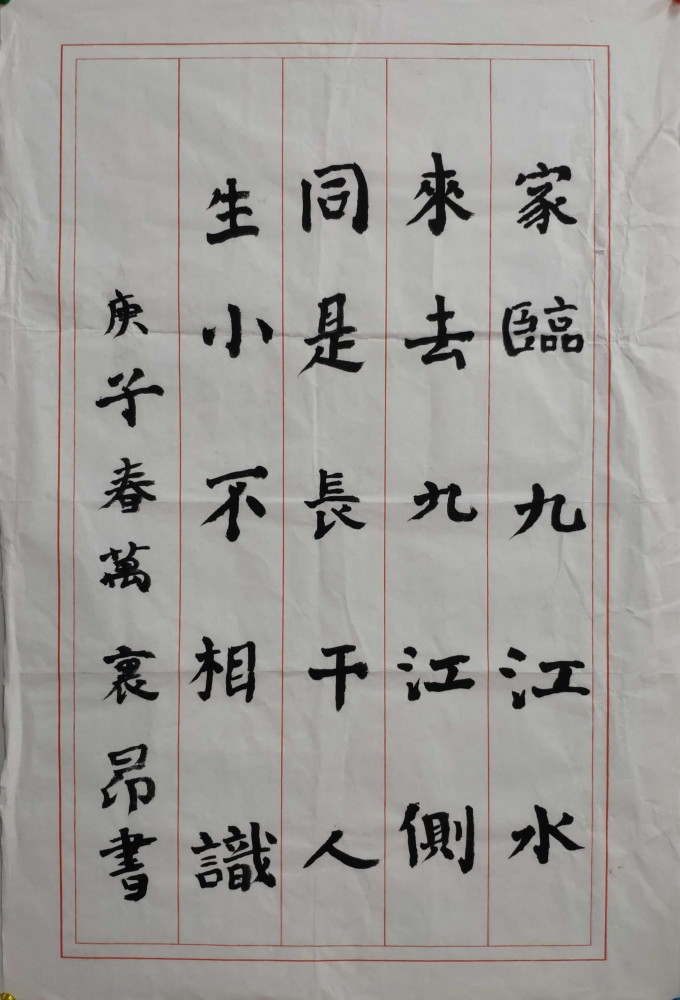 家臨九江水
來去九江側
同是長干人
生小不相識
庚子春萬裏昂書